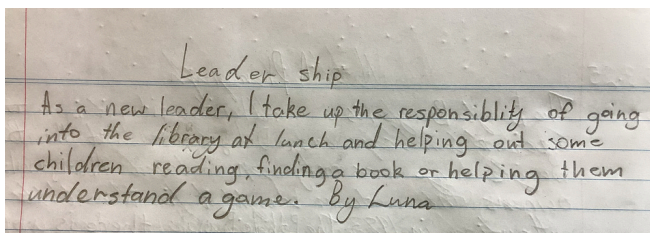 Leader ship
As a new leader, I take up the responsiblity of going
into the library at lunch and helping out some
children reading, finding a book or helping them
understand a game. By Luna